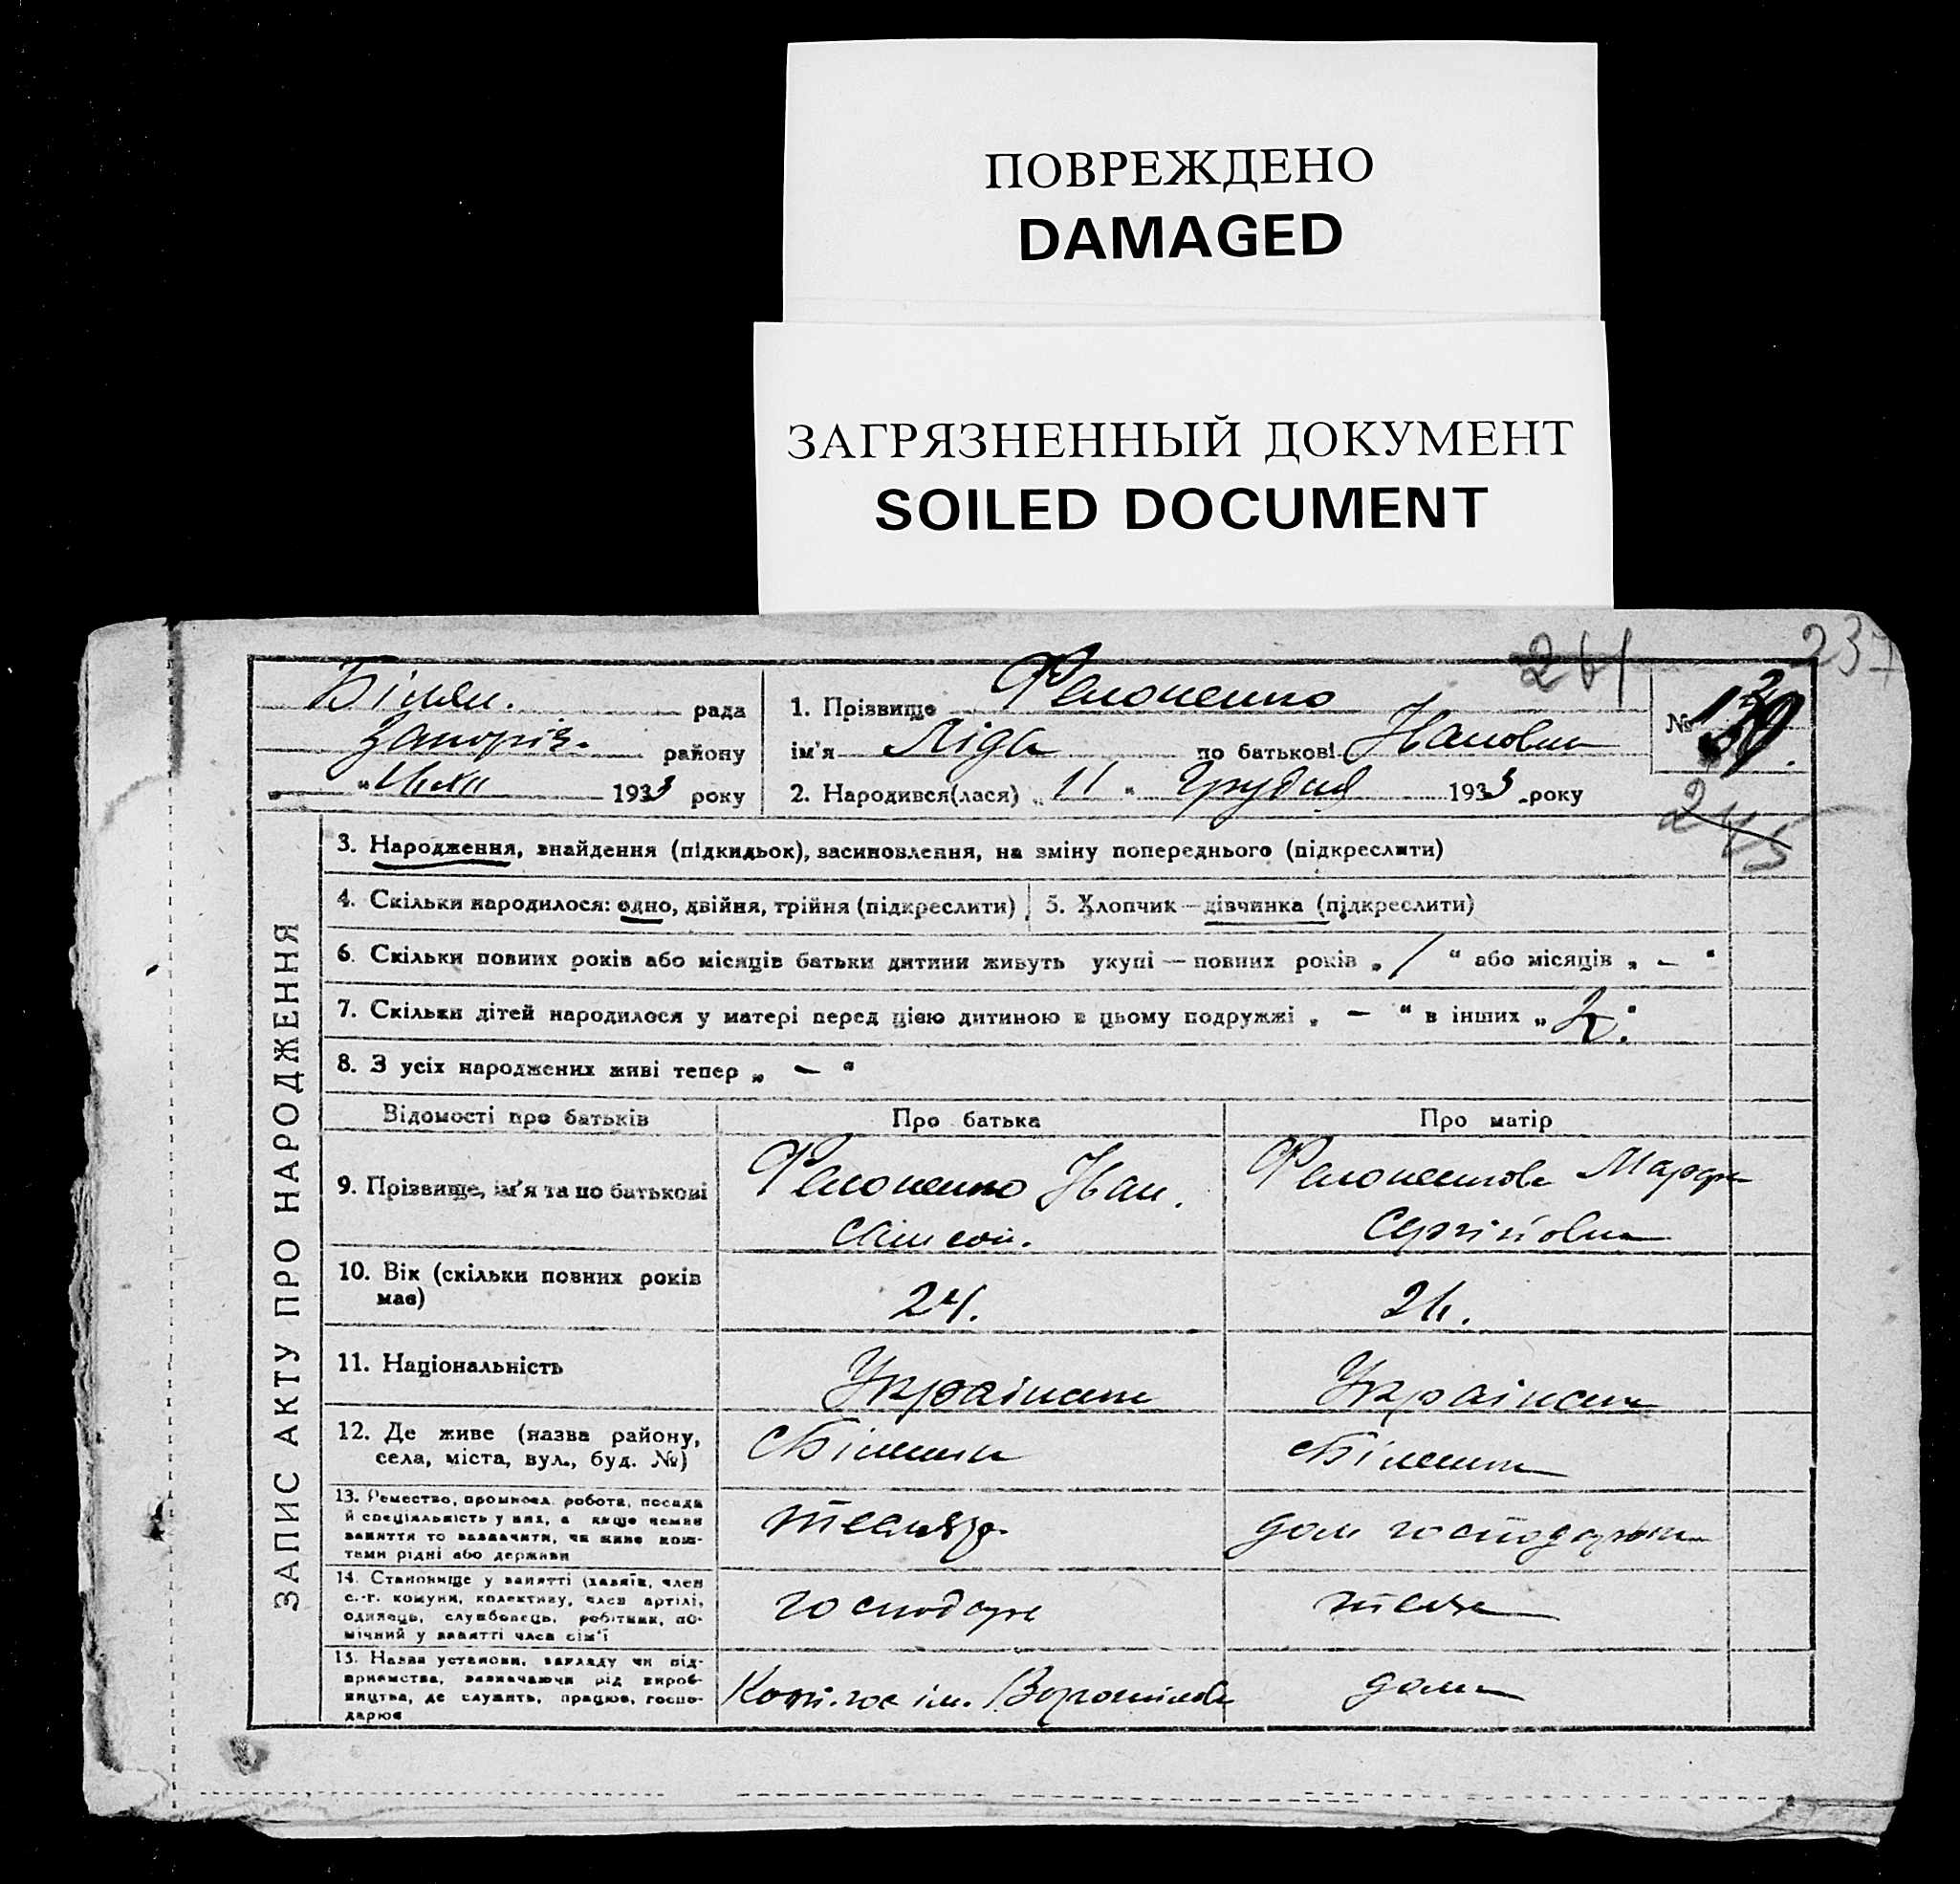 ПОВРЕЖДЕНО
DAMAGED
ЗАГРЯЗНЕННЫЙ ДОКУМЕНТ
SOILED DOCUMENT
241
237
рада
Запоріз. району
1933 року
1. Прізвище
ім'я Ліда по батькові Івановна
2. Народився(лася) „11" Грудня 1933 року
№
245
ЗАПИС АКТУ ПРО НАРОДЖЕННЯ
3. Народження, знайдення (підкидьок), засиновлення, на зміну попереднього (підкреслити)
4. Скільки народилося: одно, двійня, трійня (підкреслити)
5. Хлопчик — дівчинка (підкреслити)
6. Скільки повних років або місяців батьки дитини живуть укупі — повних років „ / " або місяців „ – "
7. Скільки дітей народилося у матері перед цією дитиною в цьому подружжі „ – " в інших „ "
8. З усіх народжених живі тепер „ – "
Відомості про батьків
Про батька
Про матір
9. Прізвище, ім'я та по батькові
Іван.
Марфа
Сергіївна
10. Вік (скільки повних років має)
24.
11. Національність
Українець
Українка
12. Де живе (назва району, села, міста, вул., буд. №)
13. Ремество, промисел, робота, посада й спеціальність у них, а якщо немає заняття то зазначити, чи живе коштами рідні або держави
тесляр
дом господарка
14. Становище у занятті (хазяїн, член с.-г. комуни, колективу, член артілі, одинець, службовець, робітник, помічний у занятті член сім'ї
господар
15. Назва установи, закладу чи підприємства, зазначаючи рід виробництва, де служить, працює, господарює
ім. Ворошилова
дома